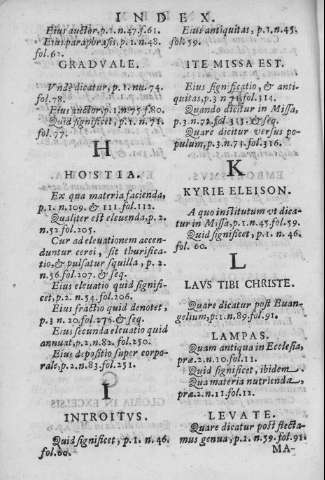 INDEX.
Eius auctor, p.1.n.47.f.61.
Eius paraphrasis, p.1.n.48.
fol.62.
GRADVALE.
Vnde dicatur, p.1. nu.74.
fol.78.
Eius auctor, p.1.n.75.f.80.
Quid significet, p.1. n. 71.
fol.77.
H
HOSTIA.
Ex qua materia facienda,
p.1.n.109. & 111.fol.112.
Qualiter est eleuenda, p.2.
n.52.fol.205.
Cur ad eleuationem accen-
duntur cerei, fit thurifica-
tio, & pulsatur squilla, p.2.
n.56.fol.207. & seq.
Eius eleuatio quid signifi-
cet, p.2. n.54.fol.206.
Eius fractio quid denotet,
p.3 n.20.fol.276. & seq.
Eius secunda eleuatio quid
annuat, p.2.n.82. fol.250.
Eius depositio super corpo-
rale, p.2.n.83.fol.251.
I
INTROITVS.
Quid significet, p.1. n.46.
fol.60.
Eius antiquitas, p.1.n.45.
fol.59.
ITE MISSA EST.
Eius significatio, & anti-
quitas, p.3 n 71.fol.314.
Quando dicitur in Missa,
p.3.n.72.fol 313.& seq.
Quare dicitur versus po-
pulum, p.3.n.73.fol.316.
K
KYRIE ELEISON.
A quo institutum vt dica-
tur in Missa, p.1.n.45.fol.59.
Quid significet, p.1. n.46.
fol. 60.
L
LAVS TIBI CHRISTE.
Quare dicatur post Euan-
gelium, p.1.n.89.fol.91.
LAMPAS.
Quam antiqua in Ecclesia,
præ.2.n.10.fol.11.
Quid significet, ibidem.
Qua materia nutrienda,
præ.2.n.11.fol.12.
LEVATE.
Quare dicatur post flecta-
mus genua, p.1. n.59.fol.91.
MA-